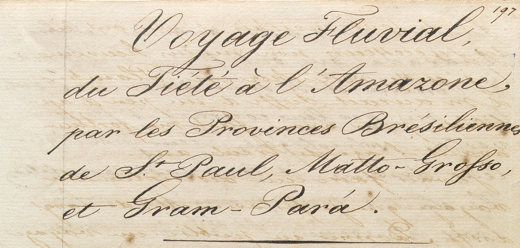 197
Voyage Fluvial,
du Tiété à l'Amazone,
par les Provinces Brésiliennes
de St. Paul, Matto-Grosso,
et Gram-Pará.